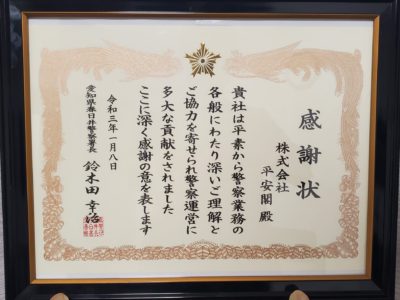 感謝状
株式会社
平安閣 殿
貴社は平素から警察業務の
各般にわたり深いご理解と
ご協力を寄せられ警察運営に
多大な貢献をされました
ここに深く感謝の意を表します
令和三年一月八日
愛知県春日井警察署長
鈴木田 幸治